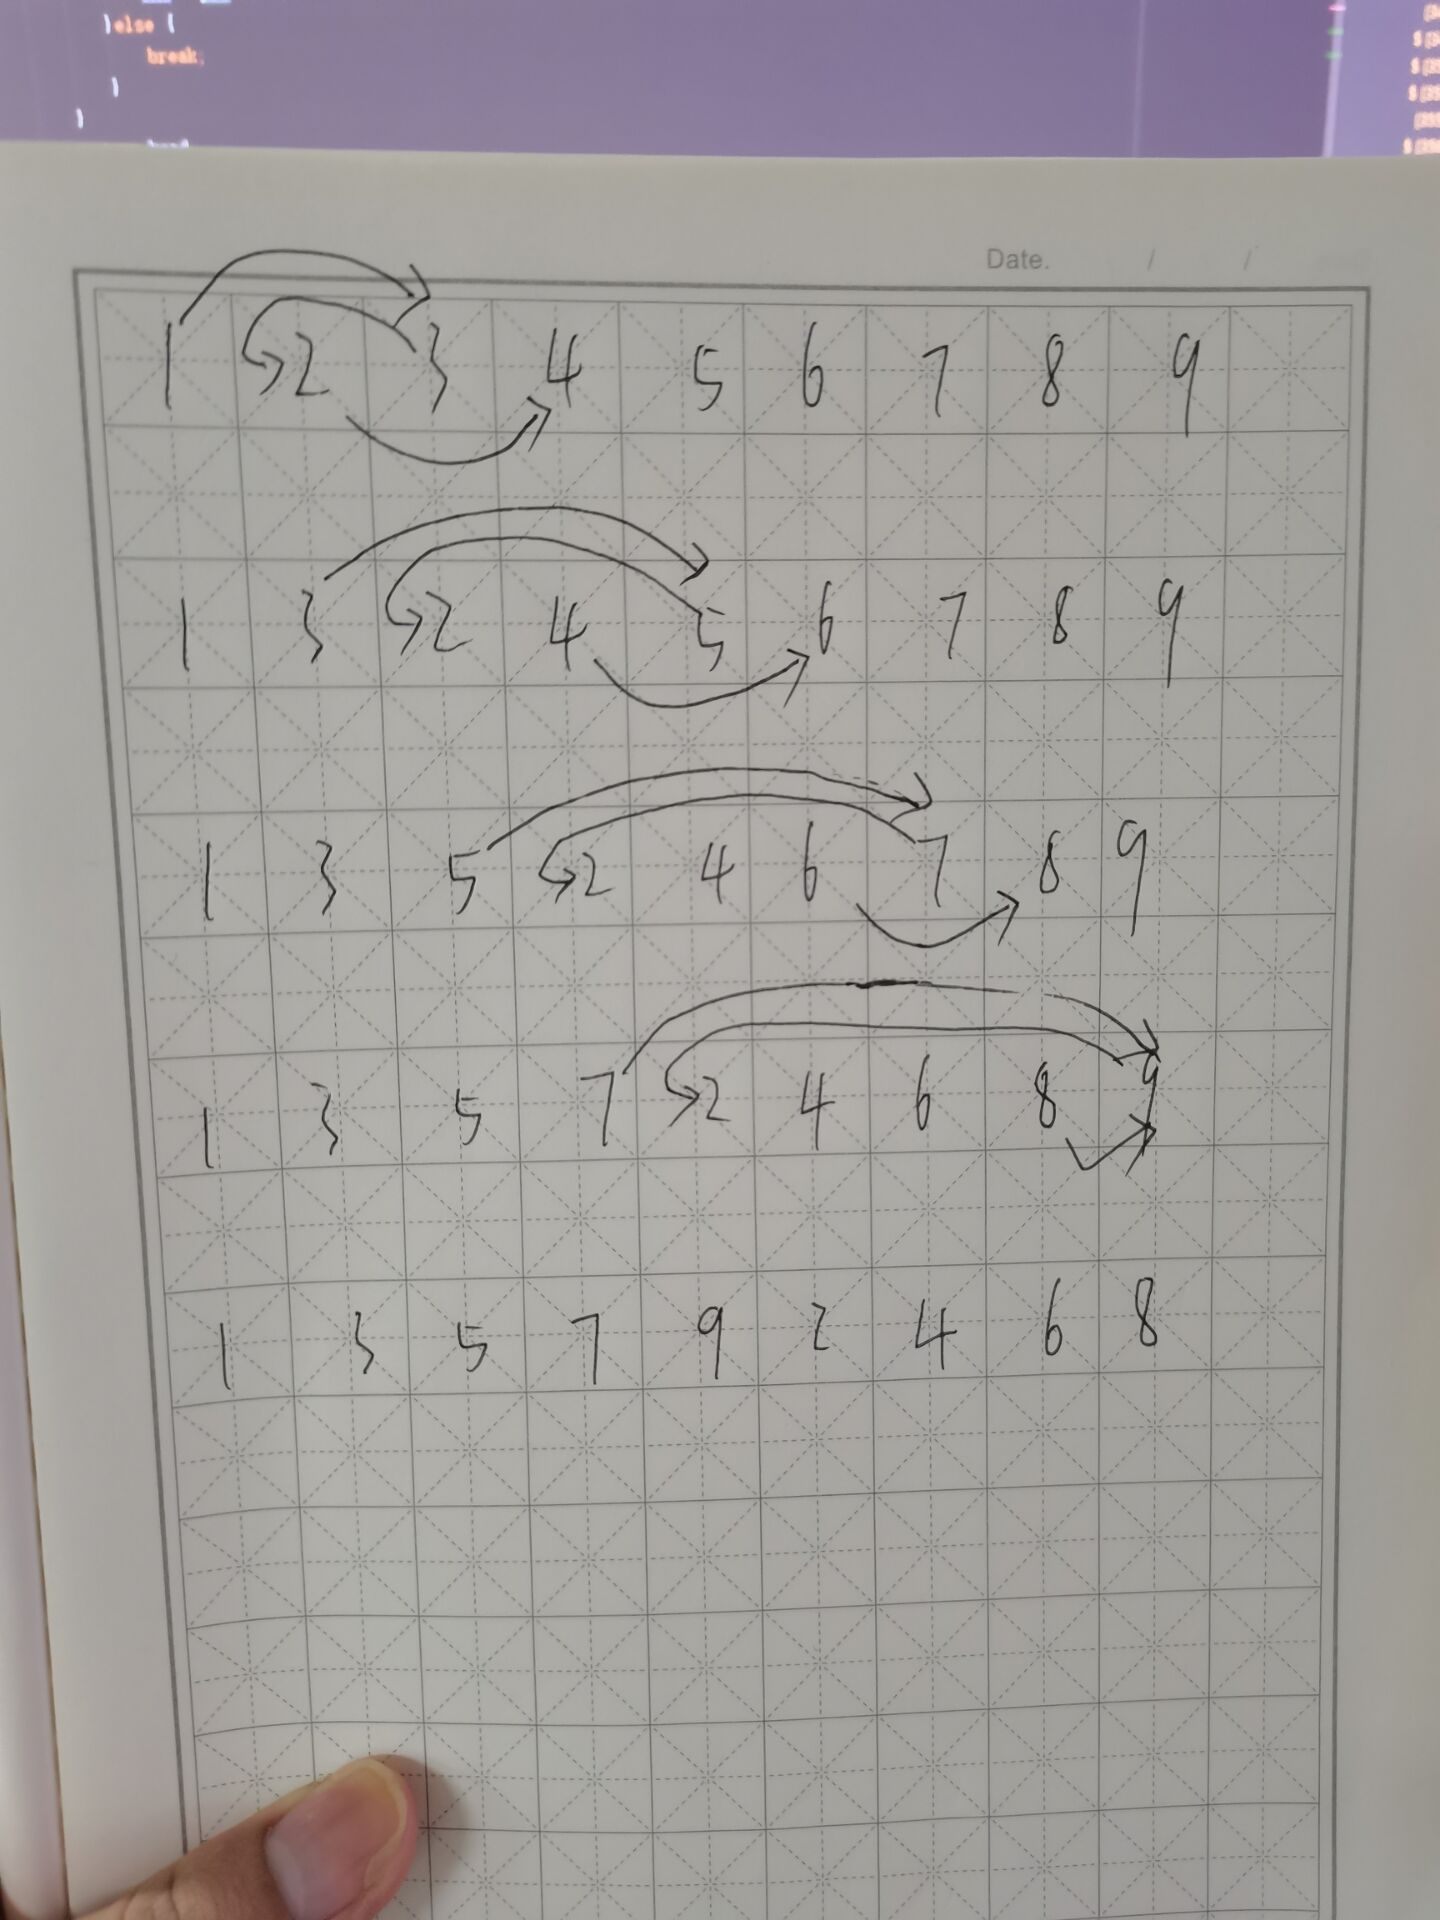 }else {
break;
}
}
Date. / /
1 2 3 4 5 6 7 8 9
1 3 2 4 5 6 7 8 9
1 3 5 2 4 6 7 8 9
1 3 5 7 2 4 6 8 9
1 3 5 7 9 2 4 6 8